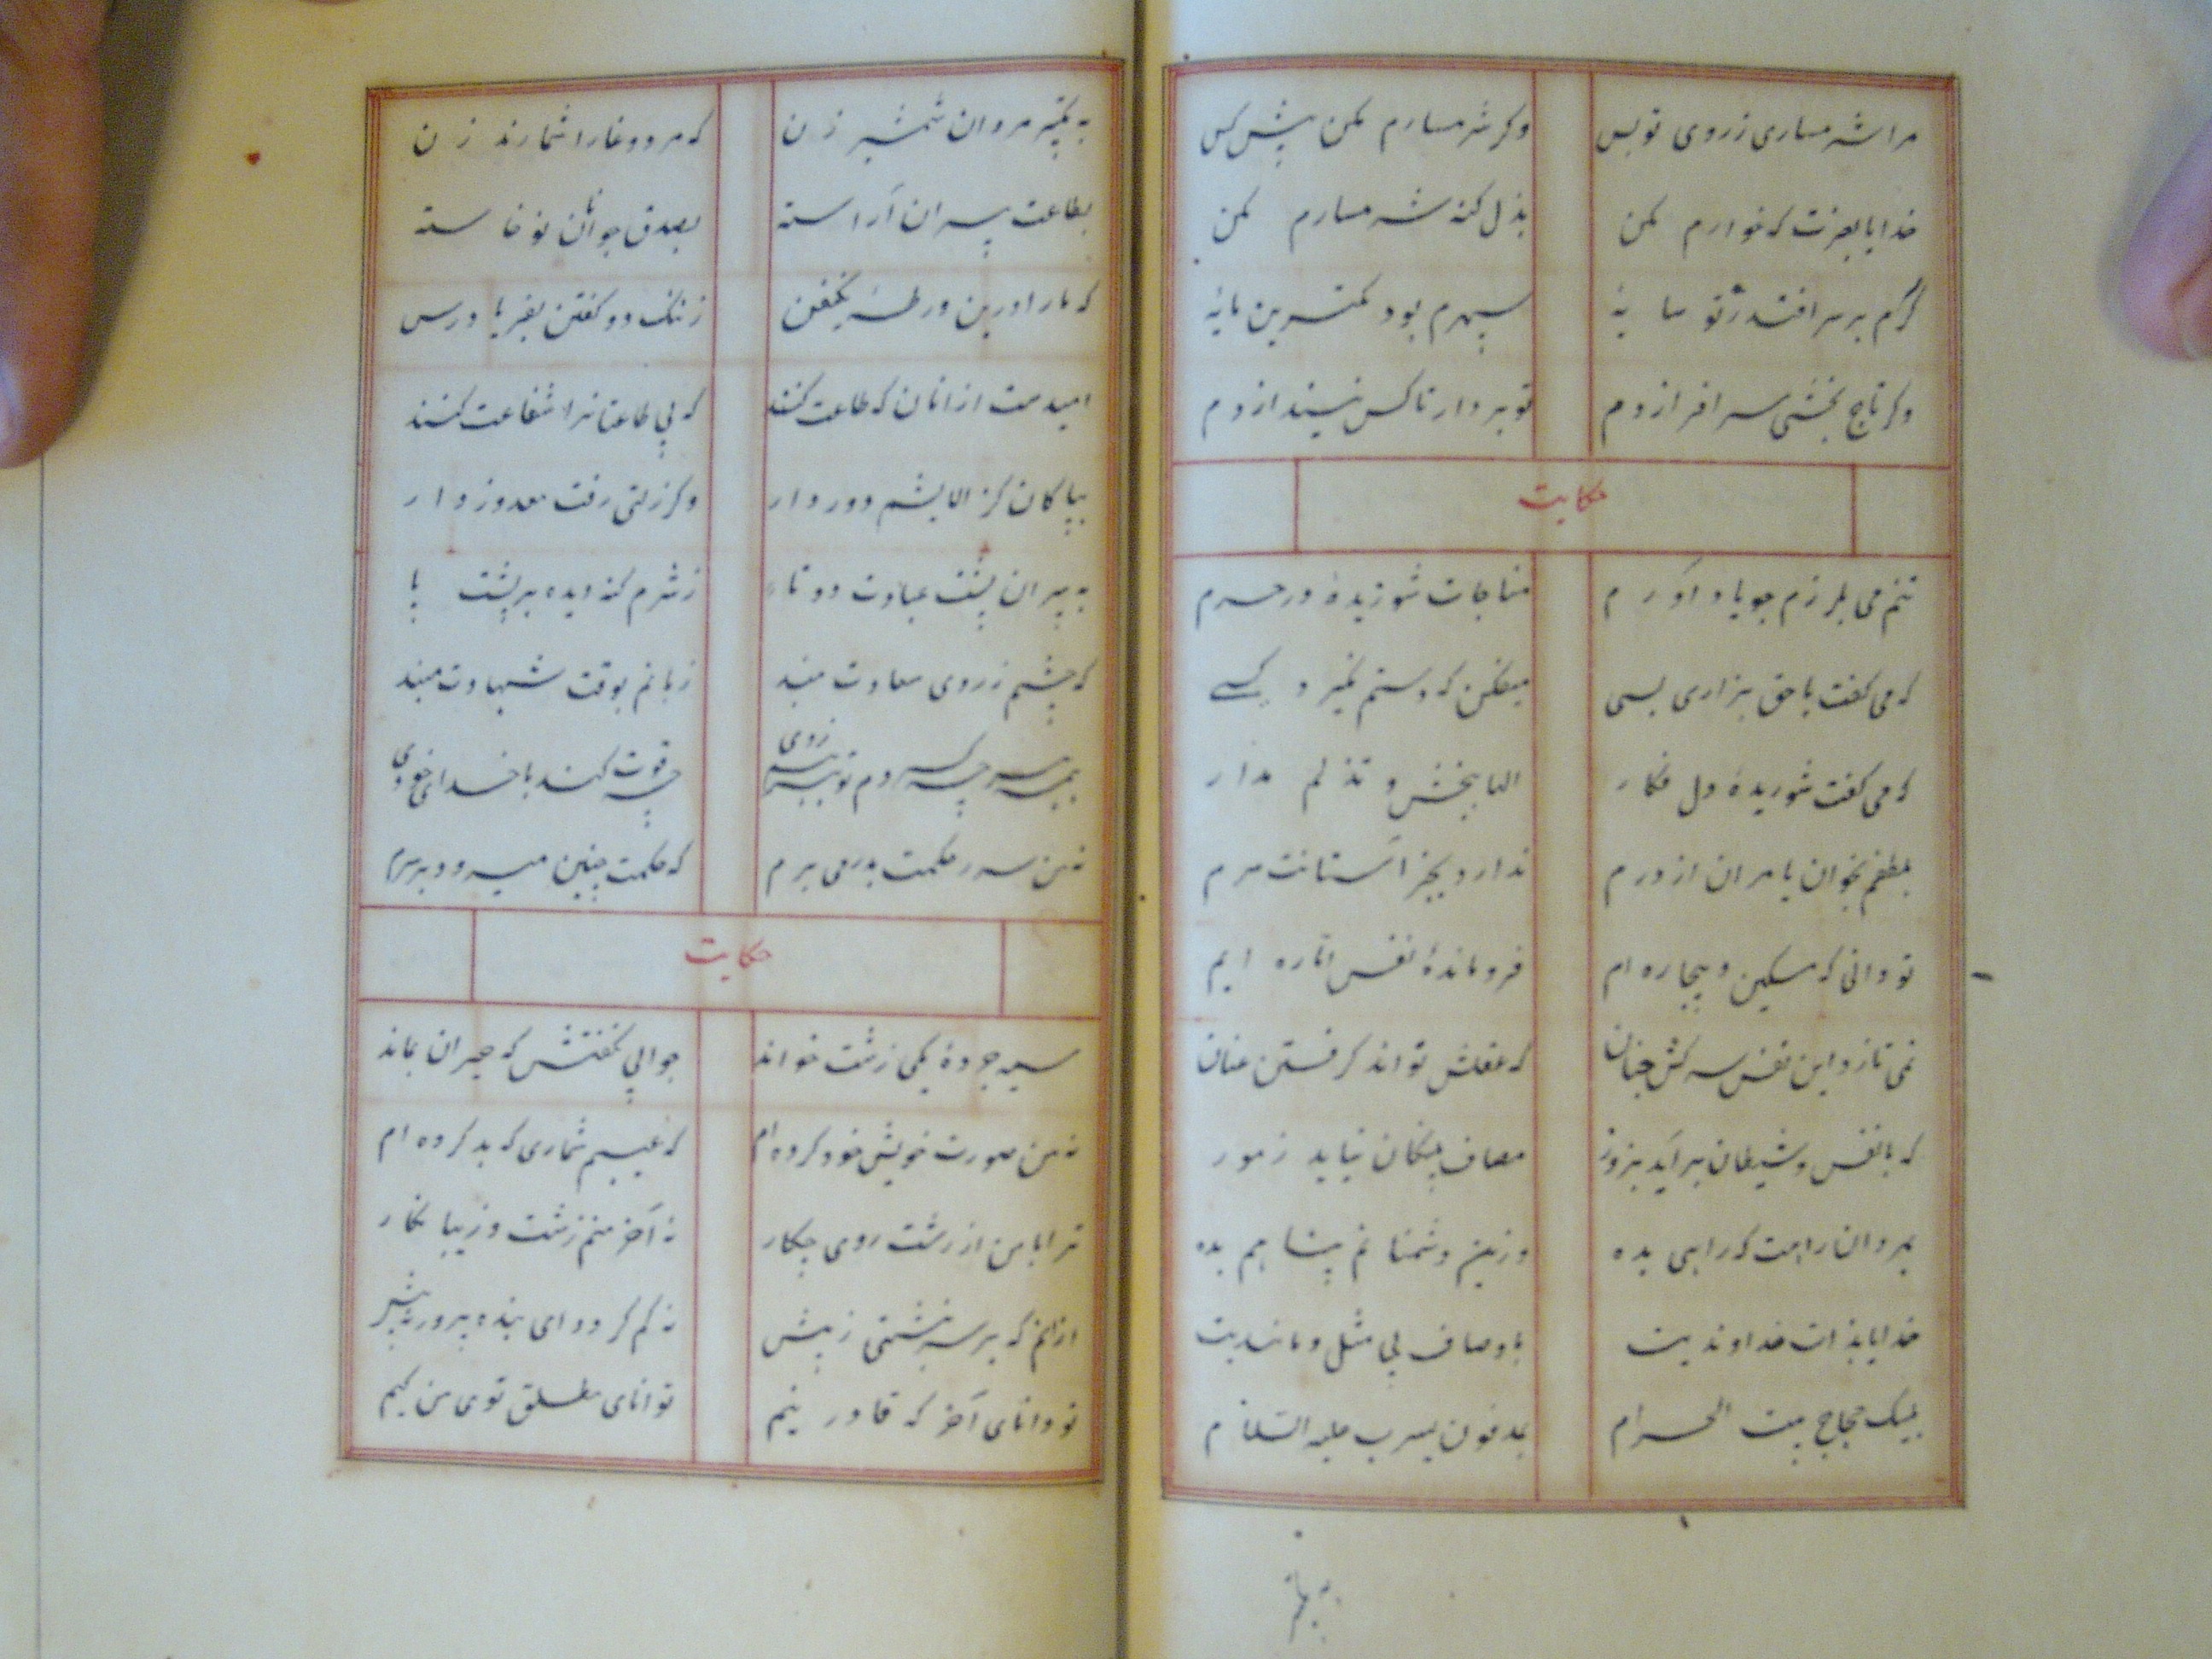 مرا شرمساری ز روی تو بس وگر شرمسارم مکن پیش کس
خدایا بعزت که خوارم مکن بذل گنه شرمسارم مکن
گرم بر سر افتد ز تو سایهٔ سپهرم بود کمترین مایهٔ
وگر تاج بخشی سر افرازدم تو بردار تا کس نیندازدم
حکایت
تنم می بلرزد چو یاد آورم مناجات شوریدهٔ در حرم
که می گفت با حق بزاری بسی میفکن که دستم نگیرد کسے
که می گفت شوریدهٔ دل فکار الها ببخش و تذلم مدار
بلطفم بخوان یا مران از درم ندارد بجز آستانت سرم
تو دانی که مسکین و بیچاره ام فرو ماندهٔ نفس اماره ایم
نمی تازد این نفس سرکش چنان که عقلش تواند گرفتن عنان
که با نفس و شیطان برآید بزور مصاف پلنگان نیاید ز مور
بمردان راهت که راهی بده وزین دشمنانم پناهم بده
خدایا بذات خداوندیت باوصاف بی مثل و مانندیت
بلبیک حجاج بیت الحرام بمدفون یثرب علیه السلام
به تکبیر مردان شمشیر زن که مرد وغا را شمارند زن
بطاعت پیران آراسته بصدق جوانان نوخاسته
که ما را درین ورطه یکنفس ز ننگ دو گفتن بفریاد رس
امیدست از آنان که طاعت کنند که بی طاعتانرا شفاعت کنند
بپاکان کز الایشم دور دار وگر زلتی رفت معذور دار
به پیران پشت عبادت دوتا ز شرم گنه دیده بر پشت پا
که چشمم ز روی سعادت مبند زبانم بوقت شهادت مبند
روی چه قوت کند با خدائی خودی
نه من سر ز حکمت بدر می برم که حکمت چنین میرود بر سرم
حکایت
سیه چردهٔ یکی زشت خواند جوابی بگفتش که حیران بماند
نه من صورت خویش خود کرده ام که عیبم شماری که بد کرده ام
ترا با من از زشت روی چکار نه آخر منم زشت و زیبا نگار
از انم که بر سر نبشتی ز پیش نه کم کردد ای بنده پرور نه بیش
تو دانای آخر که قادر نیم توانای مطلق توی من کیم